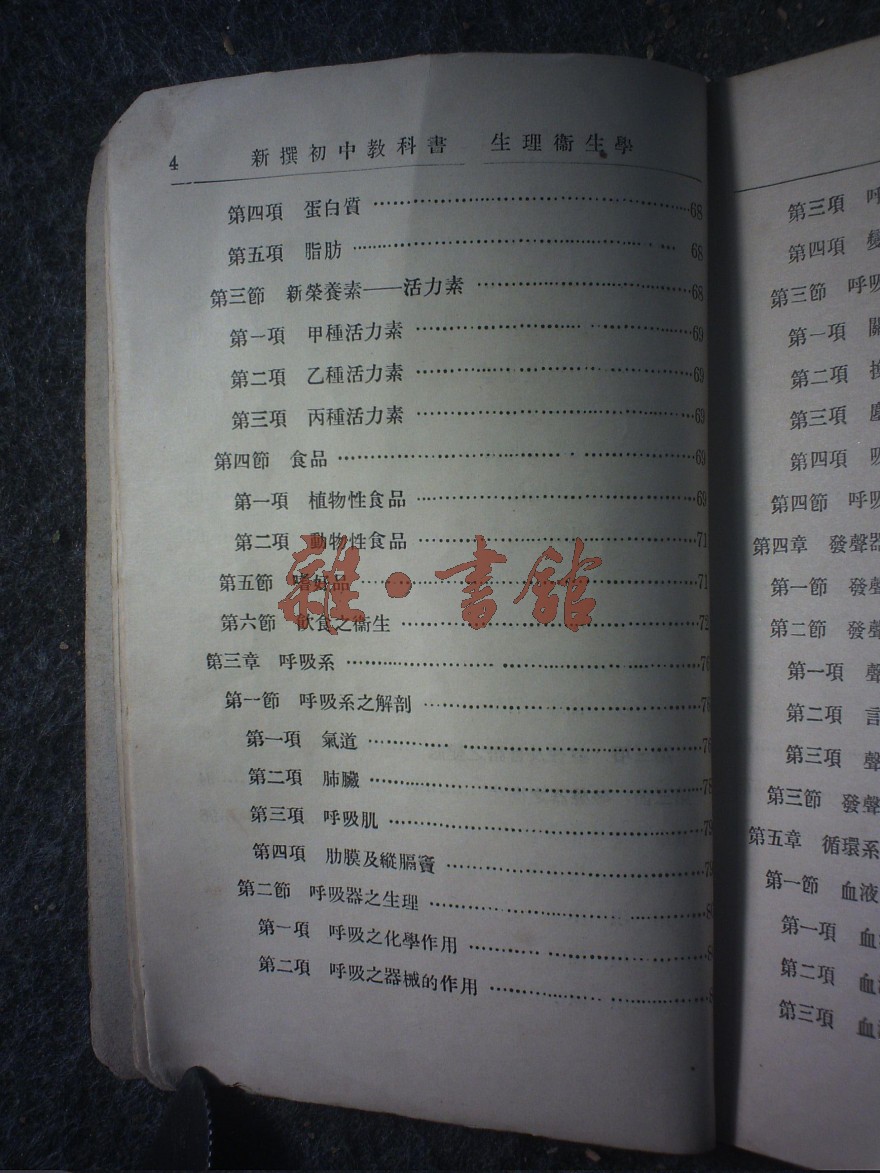 4 新撰初中教科書 生理衞生學
第四項 蛋白質 68
第五項 脂肪 68
第三節 新榮養素——活力素 68
第一項 甲種活力素 69
第二項 乙種活力素 69
第三項 丙種活力素 69
第四節 食品 69
第一項 植物性食品 69
第二項 動物性食品 71
第五節 嗜好品 71
第六節 飲食之衞生 72
第三章 呼吸系 76
第一節 呼吸系之解剖 76
第一項 氣道 76
第二項 肺臟 78
第三項 呼吸肌 79
第四項 肋膜及縱膈竇 79
第二節 呼吸器之生理
第一項 呼吸之化學作用
第二項 呼吸之器械的作用
雜·書館
第三項 呼
第四項 變
第三節 呼吸
第一項
第二項
第三項
第四項 吸
第四節 呼吸
第四章 發聲器
第一節 發聲
第二節 發聲
第一項 聲
第二項 言
第三項 聲
第三節 發聲
第五章 循環系
第一節 血液
第一項 血
第二項 血
第三項 血